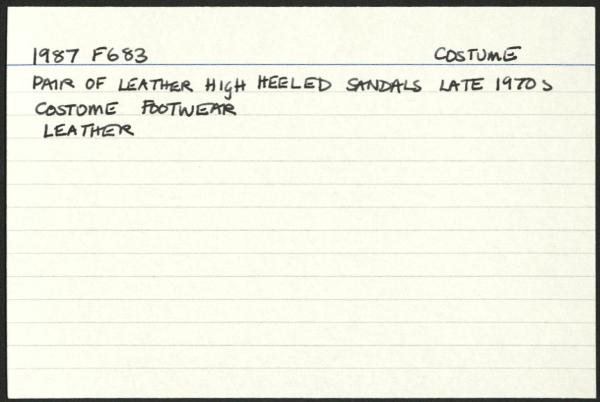 1987 F683 COSTUME
PAIR OF LEATHER HIGH HEELED SANDALS LATE 1970s
COSTOME FOOTWEAR
LEATHER